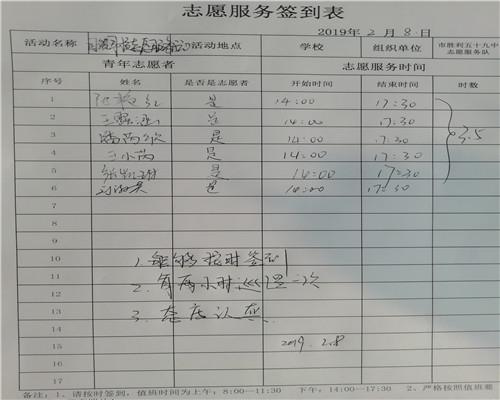 志愿服务签到表
2019年2月8日
活动名称 活动地点 学校 组织单位 市胜利五十九中志愿服务队
青年志愿者 志愿服务时间
序号 姓名 是否是志愿者 开始时间 结束时间 时数
1 是 14:00 17:30
2 是 14:00 17:30
3 是 14:00 17:30 3.5
4 王小芮 是 14:00 17:30
5 是 14:00 17:30
6 是 14:00 17:30
7
8
9
10 1.能够按时签到
11
12 2.每两小时巡逻一次
13
14 3.态度认真
15 2019.2.8
16
17
备注:1、请按时签到,值班时间为上午:8:00—11:30 下午:14:00—17:30 2、严格按照值班要